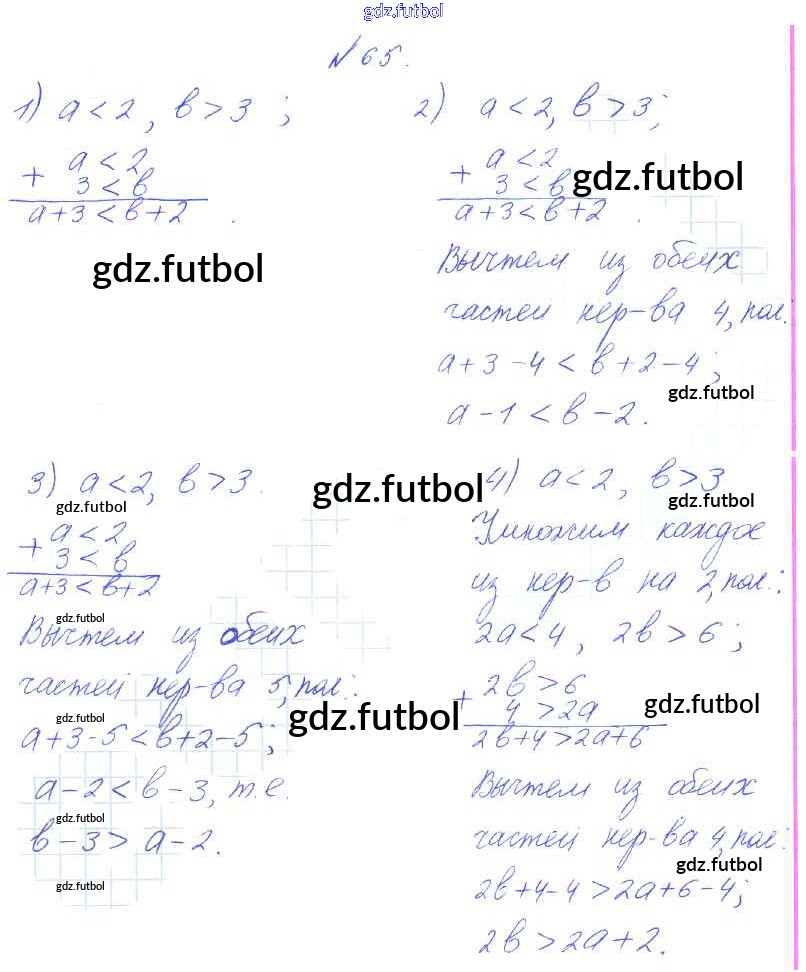 gdz.futbol
№ 65.
1) a < 2, в > 3 ;
+ a < 2
3 < в
a + 3 < в + 2 .
gdz.futbol
2) a < 2, в > 3;
+ a < 2
3 < в
gdz.futbol
a + 3 < в + 2 .
Вычтем из обеих
частей нер-ва 4, пол.:
a + 3 - 4 < в + 2 - 4 ;
gdz.futbol
a - 1 < в - 2 .
3) a < 2, в > 3 .
gdz.futbol
gdz.futbol
+ a < 2
3 < в
a + 3 < в + 2
gdz.futbol
Вычтем из обеих
частей нер-ва 5, пол.:
gdz.futbol
gdz.futbol
a + 3 - 5 < в + 2 - 5 ;
a - 2 < в - 3, т.е.
gdz.futbol
в - 3 > a - 2 .
gdz.futbol
4) a < 2, в > 3
gdz.futbol
Умножим каждое
из нер-в на 2, пол.:
2a < 4, 2в > 6 ;
+ 2в > 6
4 > 2a
gdz.futbol
2в + 4 > 2a + 6
Вычтем из обеих
частей нер-ва 4, пол:
gdz.futbol
2в + 4 - 4 > 2a + 6 - 4 ;
2в > 2a + 2 .